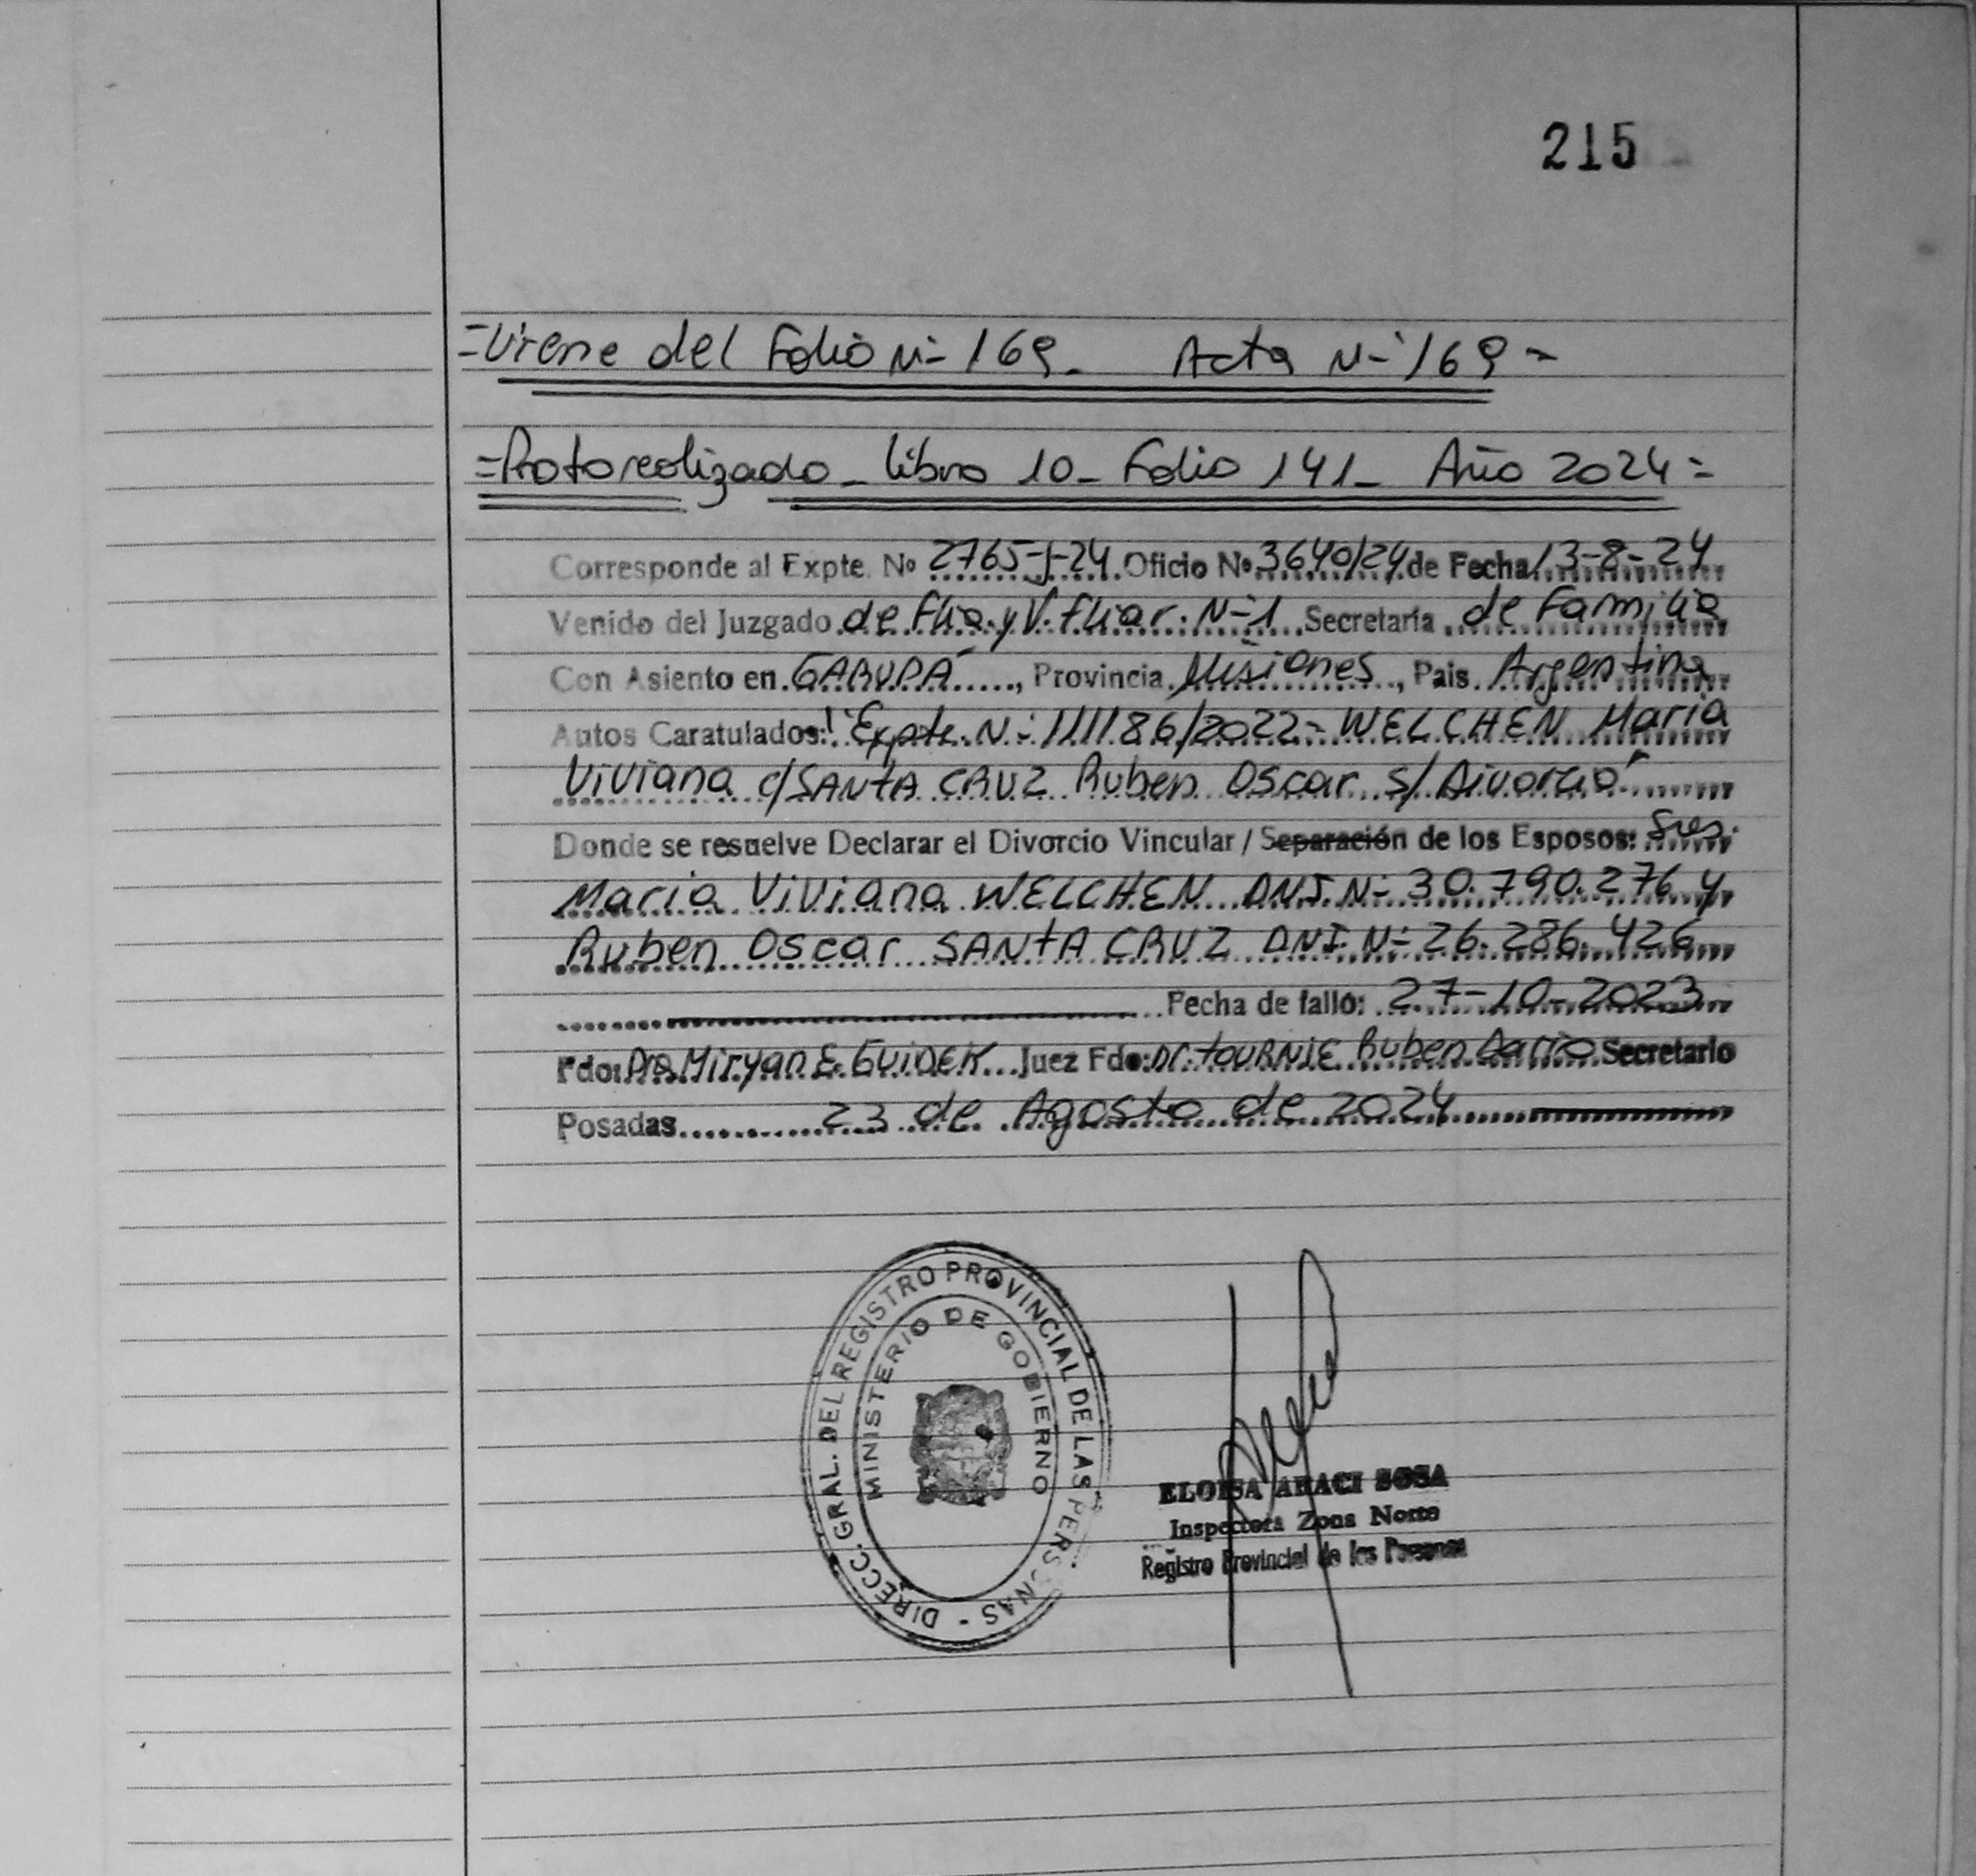 215
=Viene del Folio N- 169- Acta N- 169=
=Protocolizado - libro 10- Folio 141- Año 2024=
Corresponde al Expte. Nº 2765-J-24 Oficio Nº 3640/24 de Fecha 13-8-24
Venido del Juzgado de Flia. y V. fliar. N-1 Secretaría de Familia
Con Asiento en GARUPÁ, Provincia Misiones, Pais Argentina
Autos Caratulados: "Expte. N- 111186/2022- WELCHEN Maria
Viviana c/SANTA CRUZ Ruben Oscar s/ Divorcio"
Donde se resuelve Declarar el Divorcio Vincular / Separación de los Esposos: Sres.
Maria Viviana WELCHEN DNI.N- 30.790.276 y
Ruben Oscar SANTA CRUZ DNI.N- 26.286.426
Fecha de fallo: 27-10-2023
Fdo: Dra Miryan E. GUINEK Juez Fdo: Dr. TOURNIE Ruben Dario Secretario
Posadas 23 de Agosto de 2024
DIRECC. GRAL. DEL REGISTRO PROVINCIAL DE LAS PERSONAS -
MINISTERIO DE GOBIERNO
ELOISA ARACI SOSA
Inspectora Zona Norte
Registro Provincial de las Personas